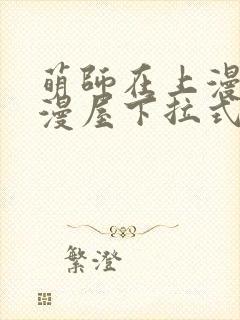 萌師在上漫
漫屋下拉式
繁澄